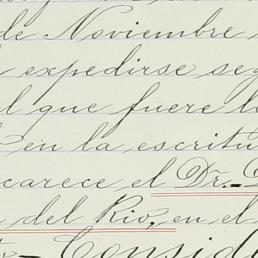 de Noviembre
expedirse seg
l que fuere lo
en la escritu
carece el Dr.
del Rio, en el
Consid